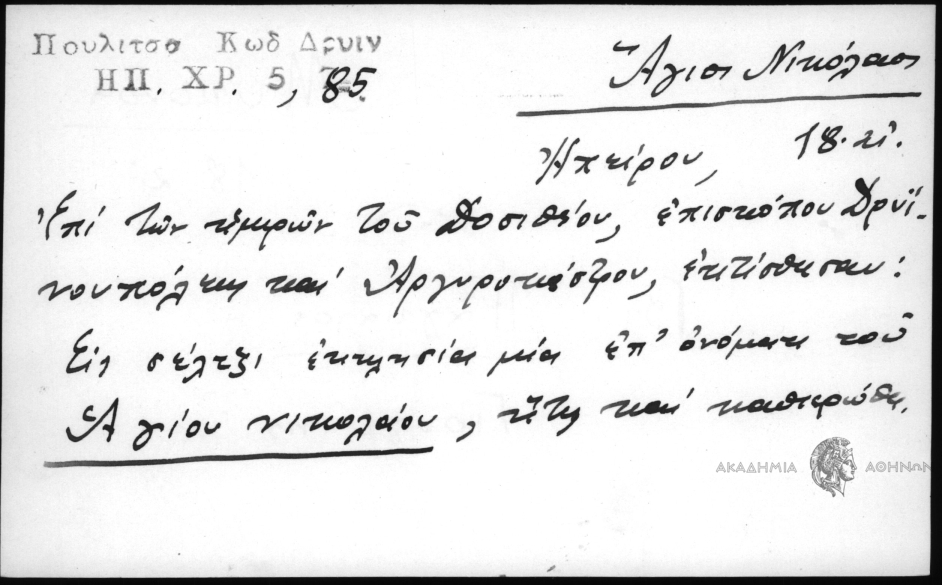 Πουλιτσα Κωδ Δρυιν
ΗΠ. ΧΡ. 5, 85.
Ἅγιος Νικόλαος
Ἠπείρου, 18. αἰ.
Ἐπὶ τῶν ἡμερῶν τοῦ Δοσιθέου, ἐπισκόπου Δρυϊ-
νουπόλεως καὶ Ἀργυροκάστρου, ἐκτίσθησαν:
Εἰς σέλτζι ἐκκλησία μία ἐπ' ὀνόματι τοῦ
Ἁγίου Νικολάου, ἥτις καὶ καθιερώθη.
ΑΚΑΔΗΜΙΑ ΑΘΗΝΩΝ